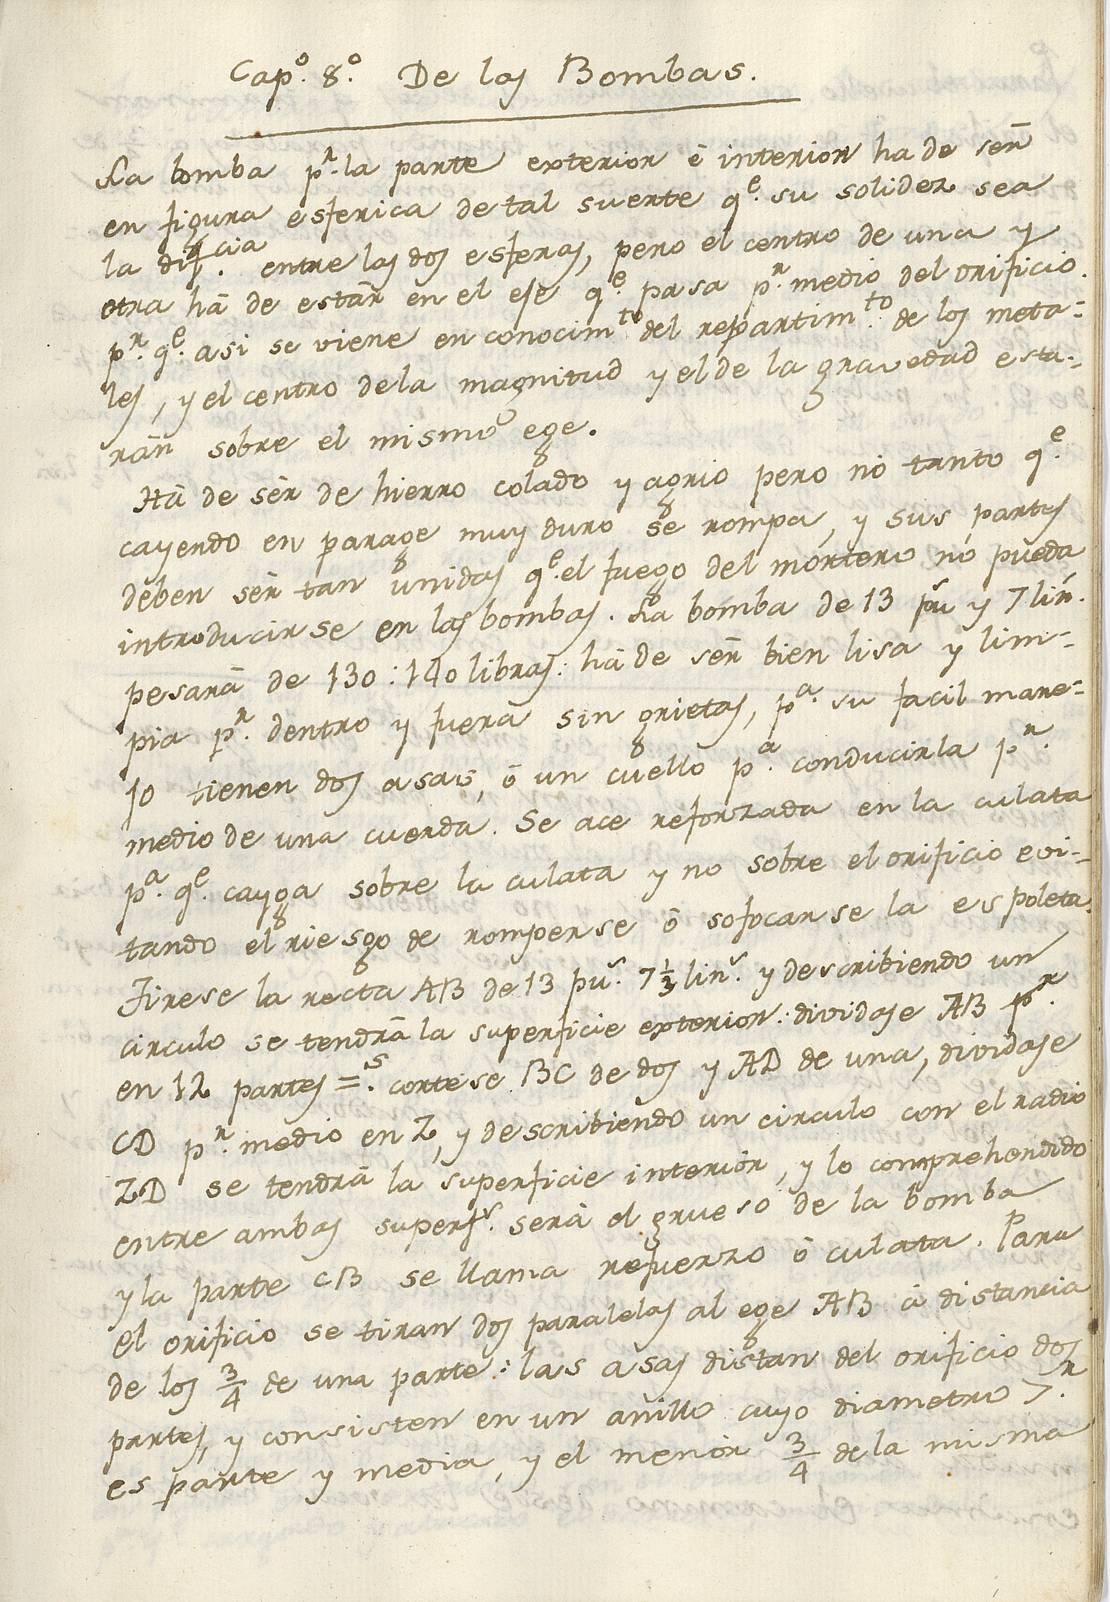 Cap.º 8.º De las Bombas.
La bomba p.r la parte exterior é interior ha de ser
en figura esferica de tal suerte q.e su solidez sea
la dif.cia entre las dos esferas, pero el centro de una y
otra há de estár en el eje q.e pasa p.r medio del orificio.
p.r q.e asi se viene en conocim.to del repartim.to de los meta=
les, y el centro de la magnitud y el de la gravedad esta-
rán sobre el mismo ege.
Há de sér de hierro colado y agrio pero no tanto q.e
cayendo en parage muy duro se rompa, y sus partes
deben sér tan unidas q.e el fuego del mortero no pueda
introducirse en las bombas. La bomba de 13 pu.s y 7 lin.s
pesará de 130: 140 libras: há de ser bien lisa y lim=
pia p.r dentro y fuera sin grietas, p.a su facil mane=
jo tienen dos asas, ó un cuello p.a conducirla p.r
medio de una cuerda. Se ace reforzada en la culata
p.a q.e cayga sobre la culata y no sobre el orificio evi-
tando el riesgo de romperse ó sofocarse la espoleta.
Tirese la recta AB de 13 pu.s 7 1/3 lin.s y describiendo un
circulo se tendrá la superficie exterior: dividase AB p.r
en 12 partes =.s cortese BC de dos y AD de una, dividase
CD p.r medio en Z, y describiendo un circulo con el radio
ZD se tendrá la superficie interior, y lo comprehendido
entre ambas superf.s será el grueso de la bomba
y la parte CB se llama refuerzo ó culata. Para
el orificio se tiran dos paralelas al ege AB á distancia
de los 3/4 de una parte: las asas distan del orificio dos
partes, y consisten en un anillo cuyo diametro >.r
es parte y media, y el menór 3/4 de la misma